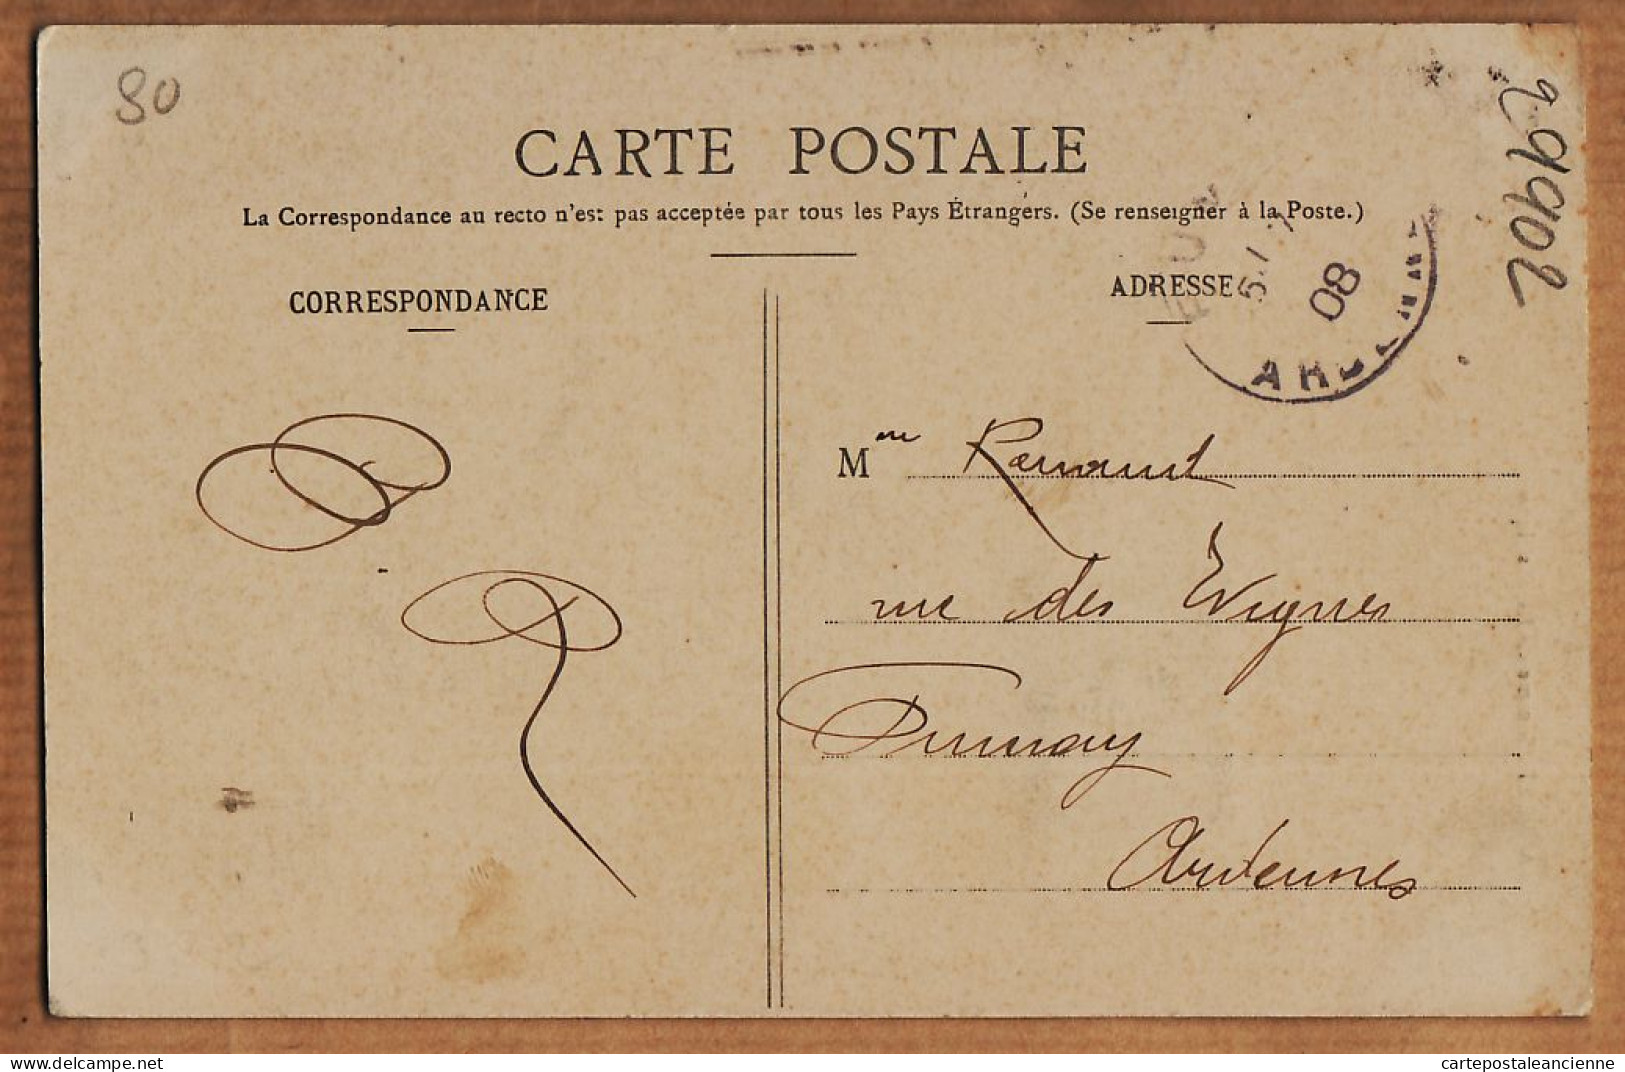 80
29902
CARTE POSTALE
La Correspondance au recto n'est pas acceptée par tous les Pays Étrangers. (Se renseigner à la Poste.)
CORRESPONDANCE
ADRESSE
08
M me
rue des Vignes
Fumay
Ardennes
delcampe.net
cartepostaleancienne